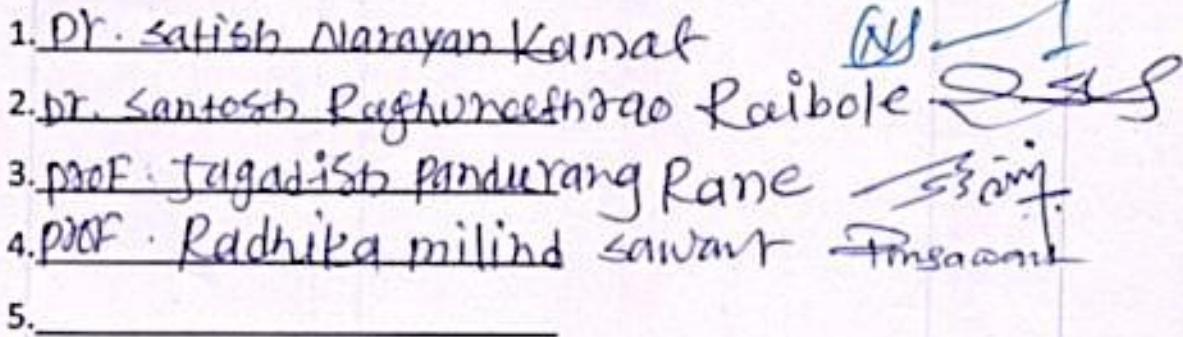 1. Dr. Satish Narayan Kamat
2. Dr. Santosh Raghunathrao Raibole
3. Prof. Jagadish Pandurang Rane
4. Prof. Radhika milind sawant
5.